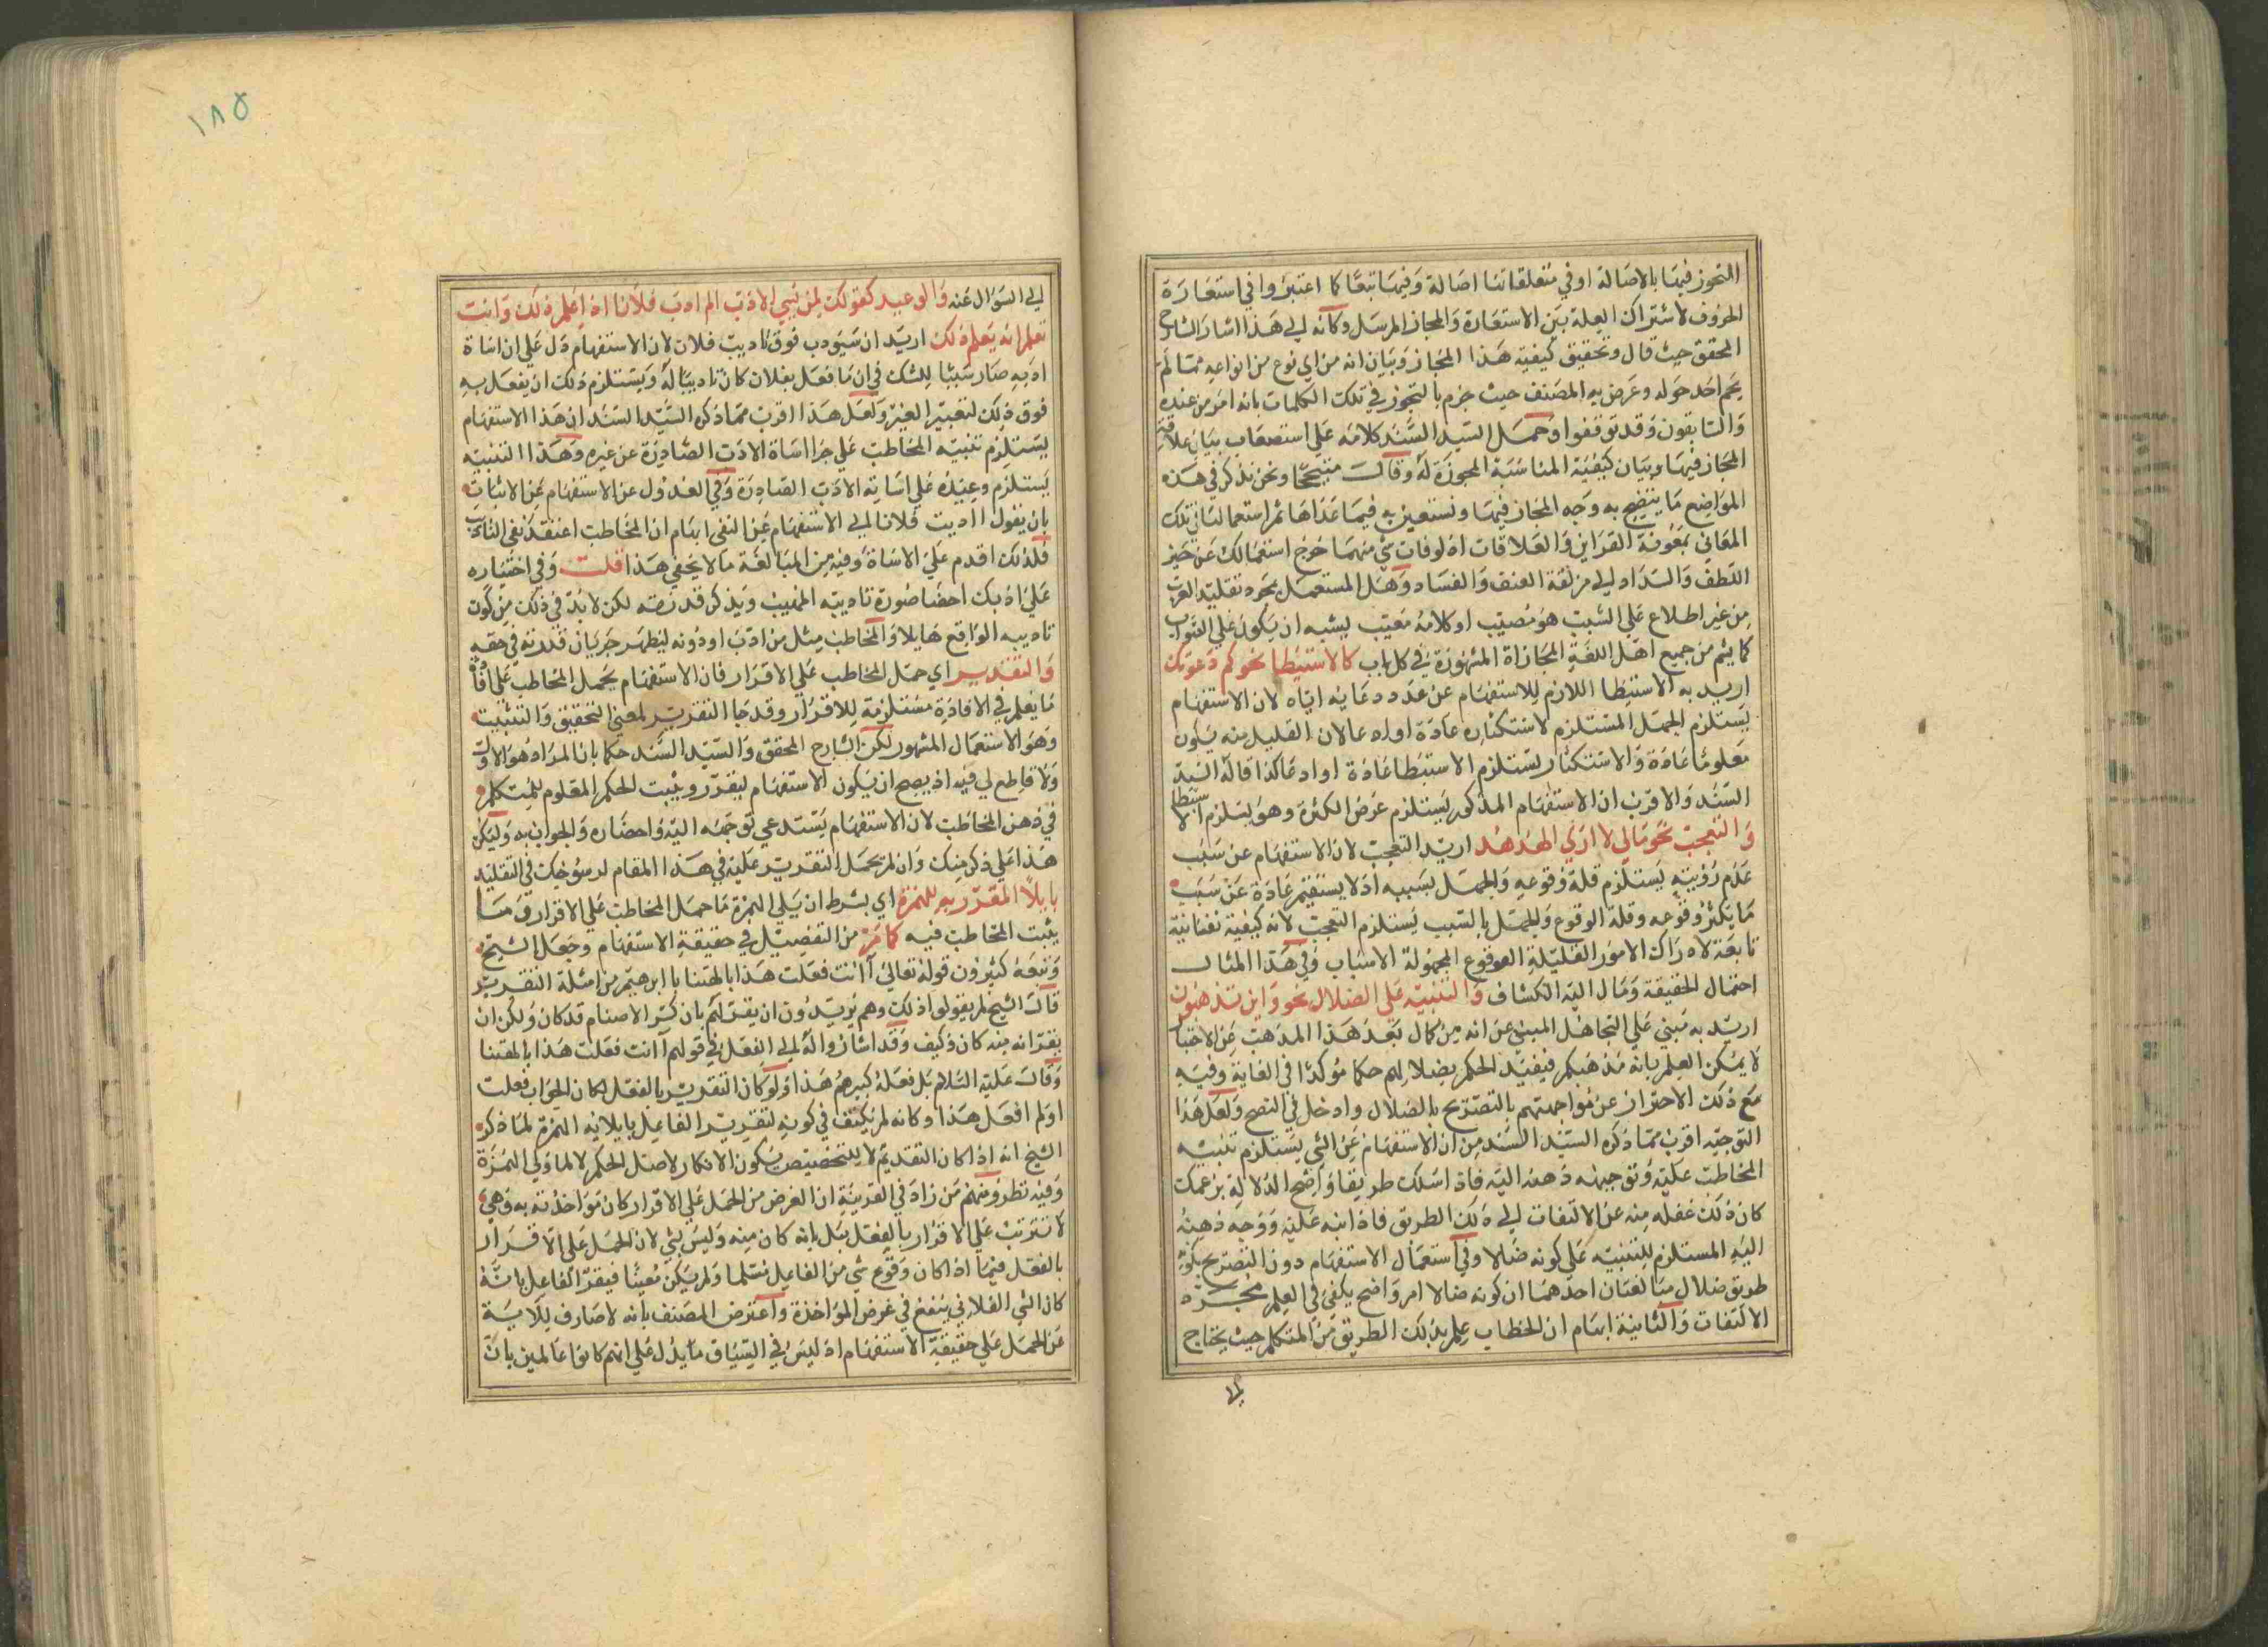 التجوز فيها بالاصالة او في متعلقاتها اصالة وفيها تبعا كما اعتبروا في استعارة
الحروف لاشتراك العلة بين الاستعارة والمجاز المرسل وكانه الى هذا اشار الشارح
المحقق حيث قال وتحقيق كيفية هذا المجاز وبيان انه من اي نوع من انواعه مما لم
يحم احد حوله وعرض به المصنف حيث جزم بالتجوز في تلك الكلمات بانه امر من عنده
والسابقون وقد توقفوا وحمل السيد السند كلامه على استصعاب بيان علاقة
المجاز فيها وبيان كيفية المناسبة المجوزة له وقال متبجحا ونحن نذكر في هذه
المواضع ما يتضح به وجه المجاز فيها ونستعين به فيما عداها ثم استعمالنا في تلك
المعاني بمعونة القراين والعلاقات اذ لو فات شي منهما خرج استعمالك عن حيز
اللطف والسداد الى مزلقة العنف والفساد وهل المستعمل بمجرد تقليد العرب
من غير اطلاع على السبب هو مصيب او كلامه معيب يشبه ان يكون على الثواب
كما يشم من جميع اهل اللغة المجازاة المشهورة في كل باب كالاستبطا نحو كم دعوتك
اريد به الاستبطا اللازم للاستفهام عن عدد دعايه اياه لان الاستفهام
يستلزم الجهل المستلزم لاستكثاره عادة او ادعا لان القليل منه يكون
معلوما عادة والاستكثار يستلزم الاستبطا عادة او ادعا كذا قاله السيد
السند والاقرب ان الاستفهام المذكور يستلزم عرض الكثرة وهو يستلزم الاستبطا
والتعجب نحو مالي لا ارى الهدهد اريد التعجب لان الاستفهام عن سبب
عدم رؤيته يستلزم قلة وقوعه والجهل بسببه اذ لا يستفهم عادة عن سبب
ما يكثر وقوعه وقلة الوقوع والجهل بالسبب يستلزم التعجب لانه كيفية نفسانية
تابعة لادراك الامور القليلة الوقوع المجهولة الاسباب وفي هذا المثال
احتمال الحقيقة ومال اليه الكشاف والتنبيه على الضلال نحو واين تذهبون
اريد به مبني على التجاهل المبني عن انه من كمال بعد هذا المذهب عن الاجتبا
لا يمكن العلم بانه مذهبكم فيفيد الحكم بضلالهم حكما مؤكدا في الغاية وفيه
مع ذلك الاحتراز عن مواجهتهم بالتصريح بالضلال وادخل في النصح ولعل هذا
التوجيه اقرب مما ذكره السيد السند من ان الاستفهام عن الشي يستلزم تنبيه
المخاطب عليه وتوجيه ذهنه اليه فاذا سلك طريقا واضح الدلالة بزعمك
كان ذلك غفلة منه عن الالتفات الى ذلك الطريق فاذا نبه عليه ووجه ذهنه
اليه المستلزم للتنبيه على كونه ضلالا وفي استعمال الاستفهام دون التصريح بكونه
طريق ضلال مبالغتان احدهما ان كونه ضالا امر واضح يكفي في العلم مجرد
الالتفات والثانية ايهام ان الخطاب علم بذلك الطريق من المتكلم حيث يحتاج
الى
١٨٥
الى السؤال عنه والوعيد كقولك لمن يسي الادب الم اودب فلانا اذا علم ذلك وانت
تعلم انه يعلم ذلك اريد ان سيودب فوق تاديب فلان لان الاستفهام دل على ان اساة
ادبه صار سببا للشك في ان ما فعل بفلان كان تاديبا له ويستلزم ذلك ان يفعل به
فوق ذلك لتغيير الغير ولعل هذا اقرب مما ذكره السيد السند ان هذا الاستفهام
يستلزم تنبيه المخاطب على جزا اساة الادب الصادرة عن غيره وهذا التنبيه
يستلزم وعيده على اساته الادب الصادرة وفي العدول عن الاستفهام عن الاثبات
بان يقول اادبت فلانا الى الاستفهام عن النفي ايهام ان المخاطب اعتقد نفي التاديب
فلذلك اقدم على الاساة وفيه من المبالغة ما لا يخفى هذا قلت وفي اختياره
على اذ بك احضا صورة تاديبه المهيب ويذكر قدرته لكن لا بد في ذلك من كون
تاديبه الواقع هايلا والمخاطب مثل من ادب او دونه ليظهر جريان قدرته في حقه
والتقرير اي حمل المخاطب على الاقرار فان الاستفهام يحمل المخاطب على افادة
ما يعلم في الافادة مستلزمة للاقرار وقد جا التقرير لمعنى التحقيق والتثبيت
وهو الاستعمال المشهور لكن الشارح المحقق والسيد السند حكما بان المراد هو الاول
ولا قاطع لي فيه اذ يصح ان يكون الاستفهام ليقرر ويثبت الحكم المعلوم للمتكلم
في ذهن المخاطب لان الاستفهام يستدعي توجهه اليه واحضاره والجواب به وليكن
هذا على ذكر منك وان لم تحمل التقرير عليه في هذا المقام لرسوخك في التقليد
بايلا المقرر به الهمزة اي بشرط ان يلي الهمزة ما حمل المخاطب على الاقرار وما
يثبت المخاطب فيه كما مر من التفصيل في حقيقة الاستفهام وجعل الشيخ
وتبعه كثيرون قوله تعالى اانت فعلت هذا بالهتنا يا ابرهيم من امثلة التقرير
قال الشيخ لم يقولوا ذلك وهم يريدون ان يقر لهم بان كسر الاصنام قد كان ولكن ان
يقر انه منه كان وكيف وقد اشاروا له الى الفعل في قولهم اانت فعلت هذا بالهتنا
وقال عليه السلام بل فعله كبيرهم هذا ولو كان التقرير بالفعل لكان الجواب فعلت
او لم افعل هذا وكانه لم يكتف في كونه لتقرير الفاعل بايلايه الهمزة لما ذكر
الشيخ انه اذا كان التقديم لا للتخصيص يكون الانكار لاصل الحكم لا لما ولي الهمزة
وفيه نظر ومنهم من زاد في القرينة ان الغرض من الحمل على الاقرار كان مواخذته به وهي
لا تترتب على الاقرار بالفعل بل بانه كان منه وليس بشي لان الحمل على الاقرار
بالفعل فيما اذا كان وقوع شي من الفاعل مسلما ولم يكن معينا فيقر الفاعل بانه
كان الشي الفلاني ينفع في غرض المواخذة واعترض المصنف بانه لا صارف للاية
عن الحمل على حقيقة الاستفهام اذ ليس في السياق ما يدل على انهم كانوا عالمين بان